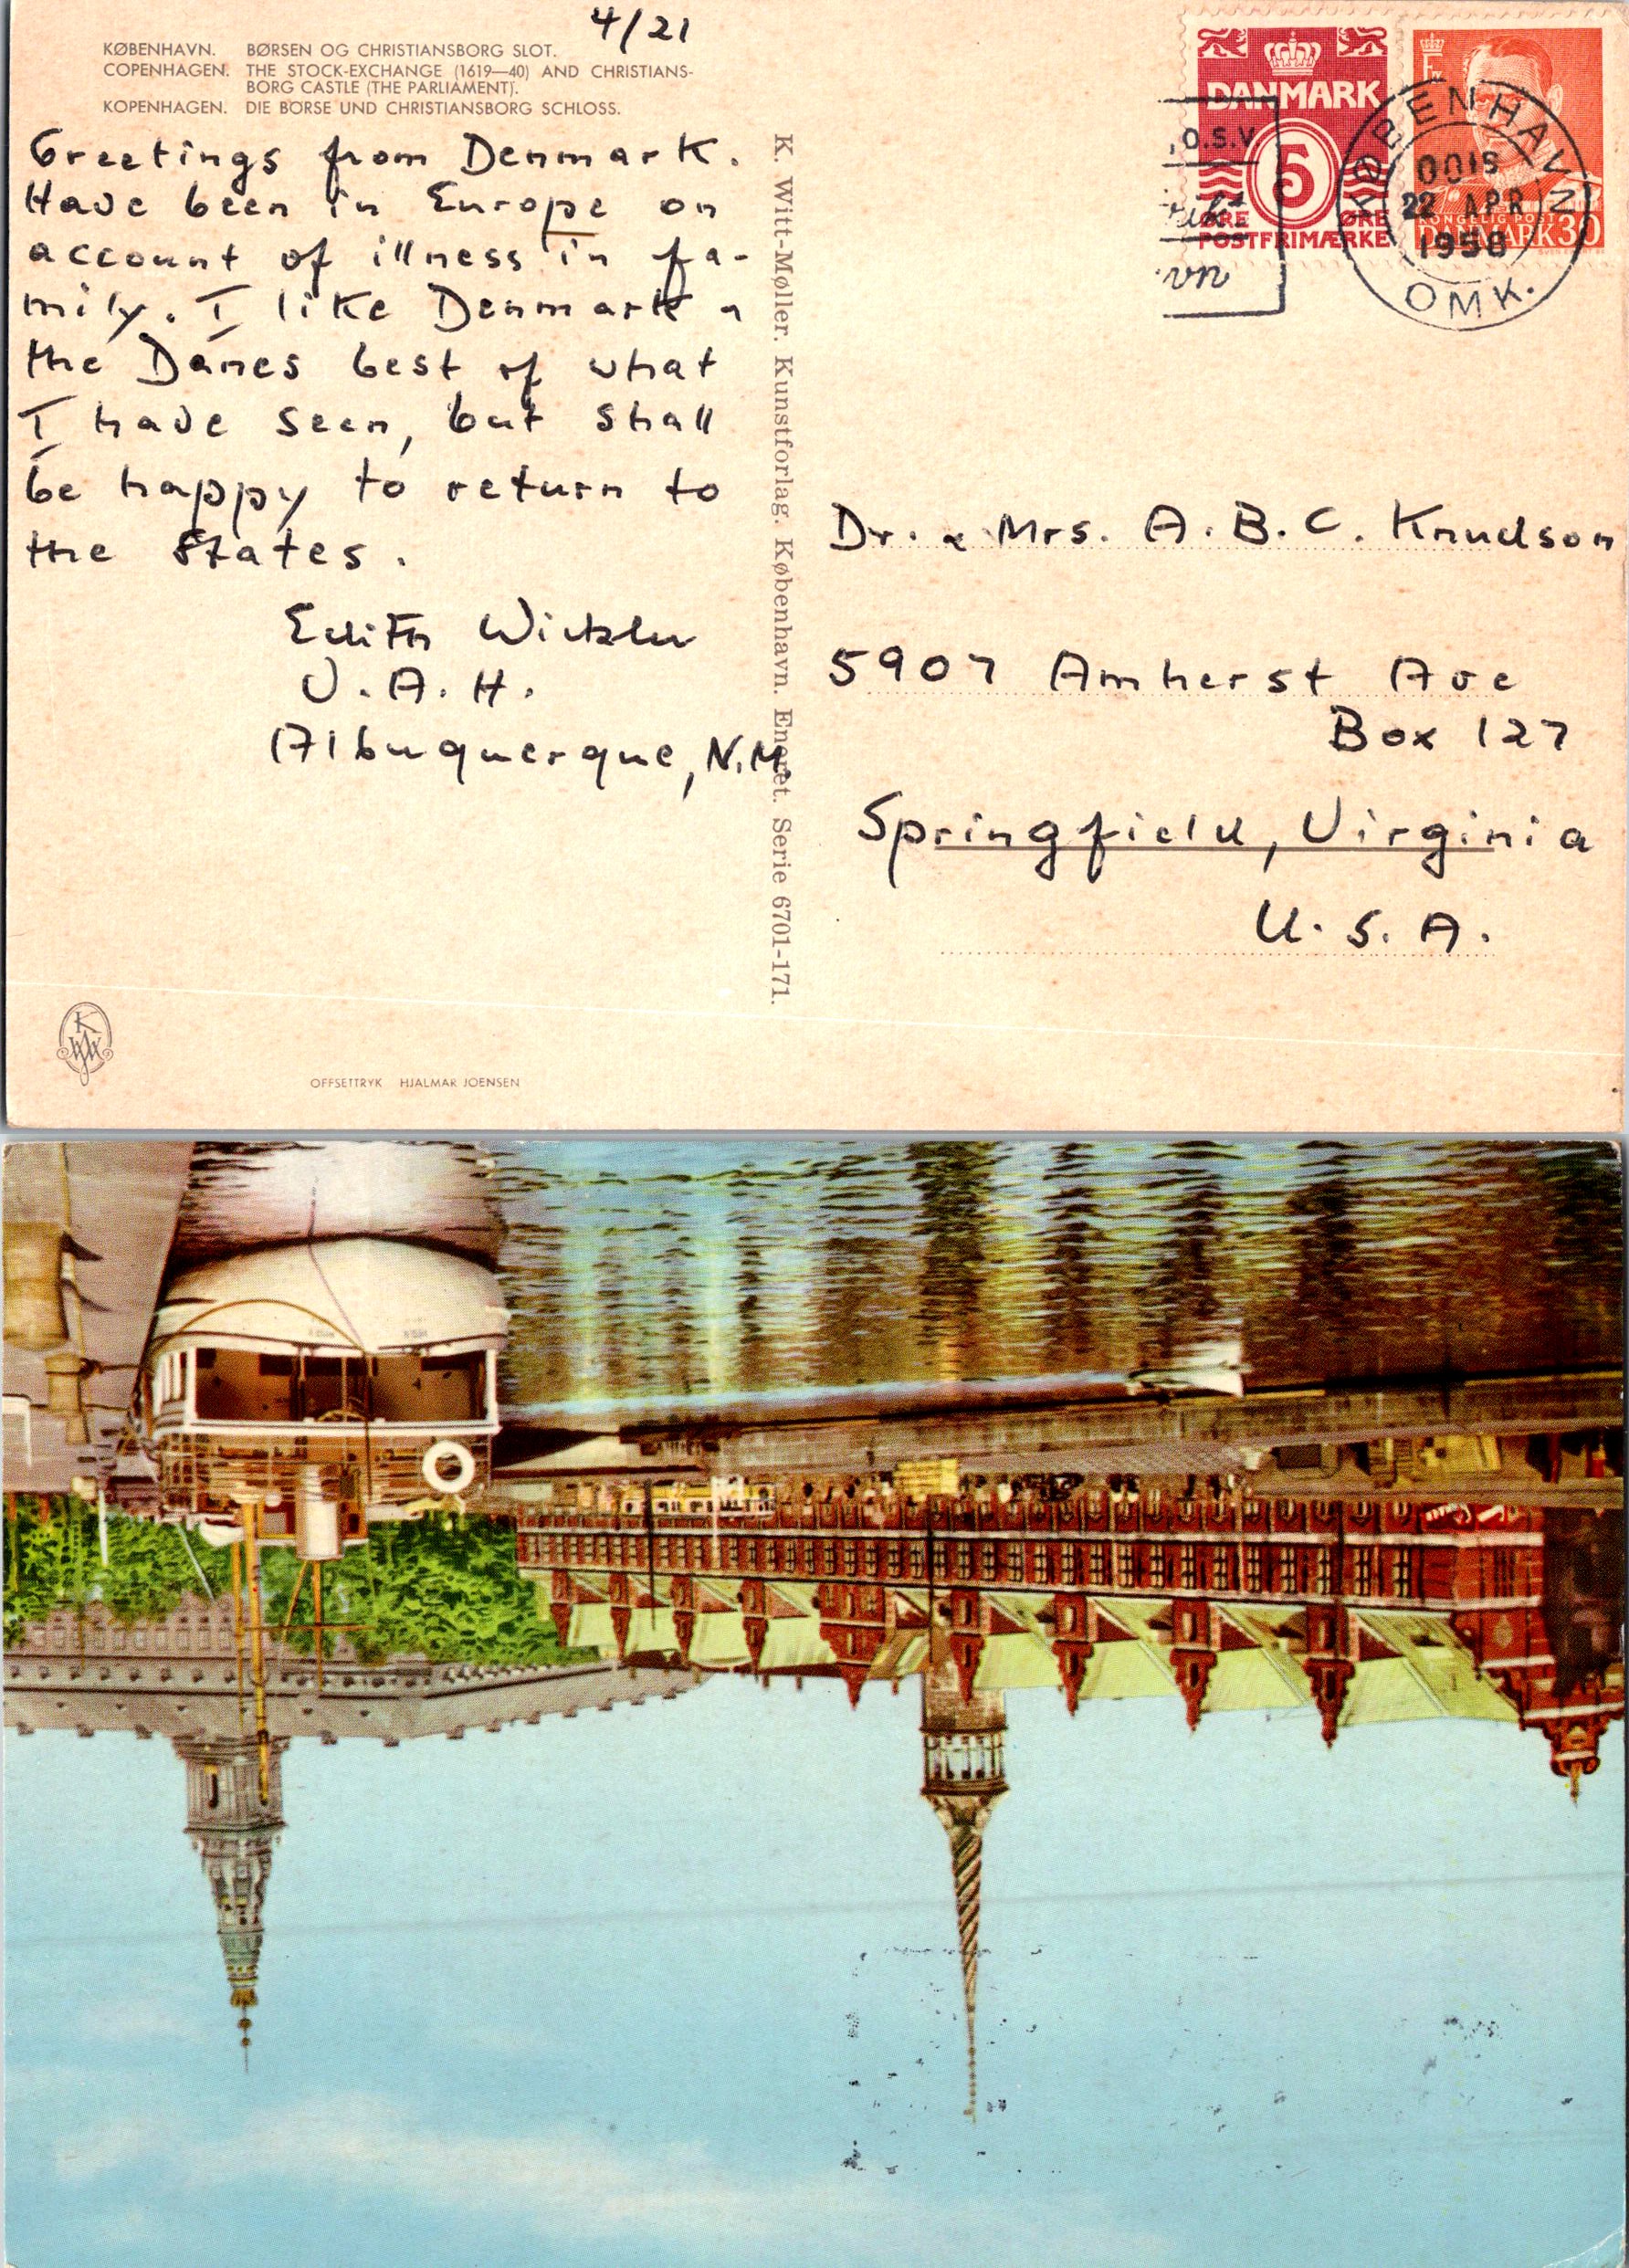 4/21
KØBENHAVN. BØRSEN OG CHRISTIANSBORG SLOT.
COPENHAGEN. THE STOCK-EXCHANGE (1619—40) AND CHRISTIANS-
BORG CASTLE (THE PARLIAMENT).
KOPENHAGEN. DIE BÖRSE UND CHRISTIANSBORG SCHLOSS.
Greetings from Denmark.
Have been in Europe on
account of illness in fa-
mily. I like Denmark &
the Danes best of what
I have seen, but shall
be happy to return to
the States.
Edith
V.A.H.
Albuquerque, N.M.
OFFSETTRYK HJALMAR JOENSEN
K. Witt-Møller. Kunstforlag. København. Eneret. Serie 6701-171.
DANMARK
5
ØRE ØRE
POSTFRIMÆRKE
KONGELIG POST
DANMARK 30
, O.S.V.
KØBENHAVN
22 APR
1958
OMK.
Dr. & Mrs. A. B. C. Knudson
5907 Amherst Ave
Box 127
Springfield, Virginia
U. S. A.